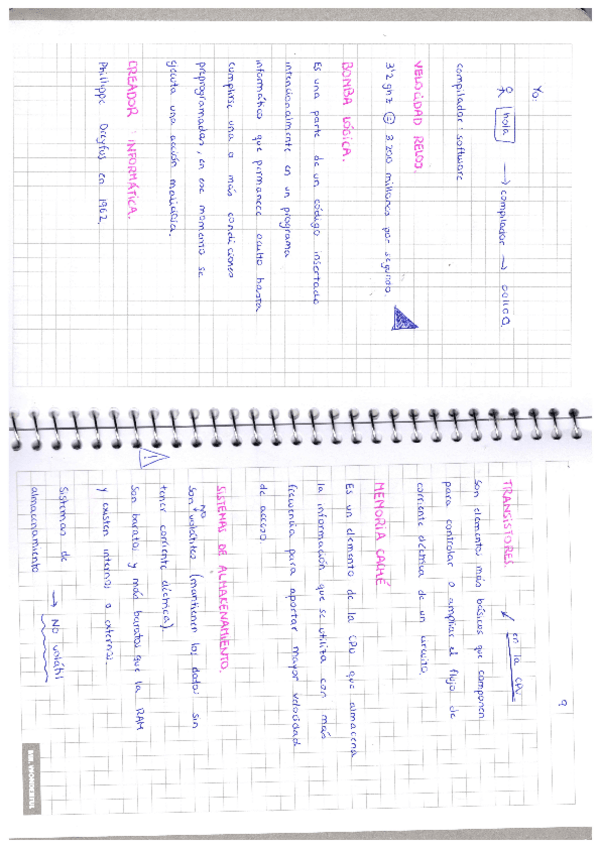 Yo:
hola → compilador → 001100.
compilador: software
VELOCIDAD RELOJ.
3'2 ghz = 3 200 millones por segundo.
BOMBA LÓGICA.
Es una parte de un código insertado
intencionalmente en un programa
informático que permanece oculto hasta
cumplirse una o más condiciones
preprogramadas, en ese momento se
ejecuta una acción maliciosa.
CREADOR INFORMÁTICA.
Phillippe Dreyfus en 1962.
?
TRANSISTORES. en la CPU
Son elementos más básicos que componen
para controlar o ampliar el flujo de
corriente eléctrica de un circuito.
MEMORIA CACHÉ
Es un elemento de la CPU que almacena
la información que se utiliza con más
frecuencia para aportar mayor velocidad
de acceso.
SISTEMAS DE ALMACENAMIENTO.
Son no volátiles (mantienen los datos sin
tener corriente eléctrica).
Son baratos y más baratos que la RAM
y existen internos o externos.
Sistemas de
almacenamiento → No volátil
MR. WONDERFUL